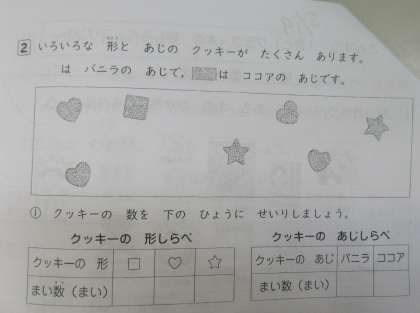 2 いろいろな 形と あじの クッキーが たくさん あります。
は バニラの あじで, は ココアの あじです。
① クッキーの 数を 下の ひょうに せいりしましょう。
クッキーの 形しらべ
クッキーの 形 □ ♡ ☆
まい数（まい）
クッキーの あじしらべ
クッキーの あじ バニラ ココア
まい数（まい）